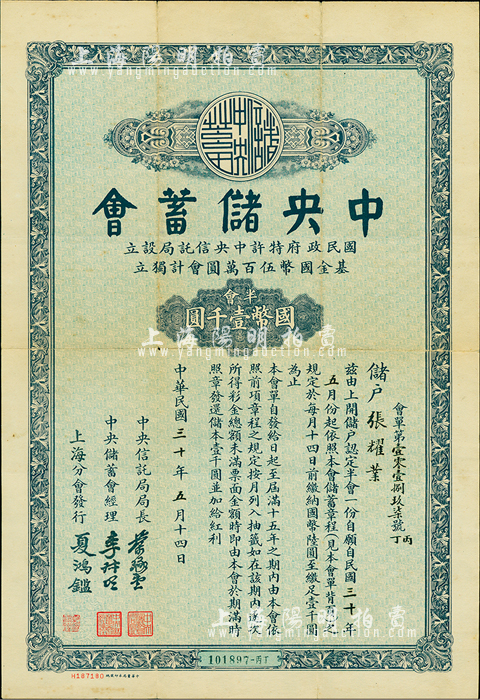 上海陽明拍賣
www.yangmingauction.com
中央儲蓄會
會蓄儲央中
立設局託信央中許特府政民國
立獨計會圓萬百伍幣國金基
會半
圓千壹幣國
上海陽明拍賣
www.yangmingauction.com
會單第壹零壹捌玖柒號丙丁
儲戶張耀業
茲由上開儲戶認定半會一份自願自民國三十年
五月份起依照本會儲蓄章程(見本會單背面)之
規定於每月十四日前繳納國幣陸圓至繳足壹千圓
為止
本會單自發給日起至屆滿十五年之期內由本會依
照前項章程之規定按月列入抽籤如在該期內逐次
所得彩金總額未滿票面金額時即由本會於期滿時
照章發還儲本壹千圓並加給紅利
中華民國三十年五月十四日
中央信託局局長
中央儲蓄會經理
上海分會發行
夏鴻鑑
101897-丙丁
H187180
上海陽明拍賣
www.yangmingauction.com